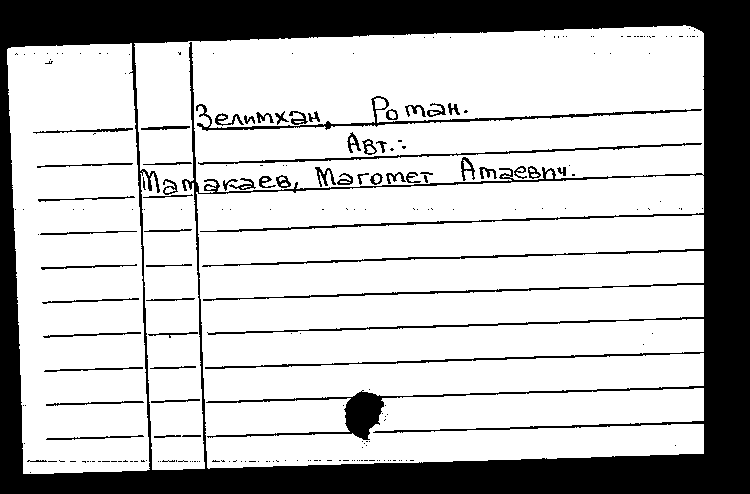 Зелимхан, Роман.
Авт.:
Мамакаев, Магомет Амаевич.